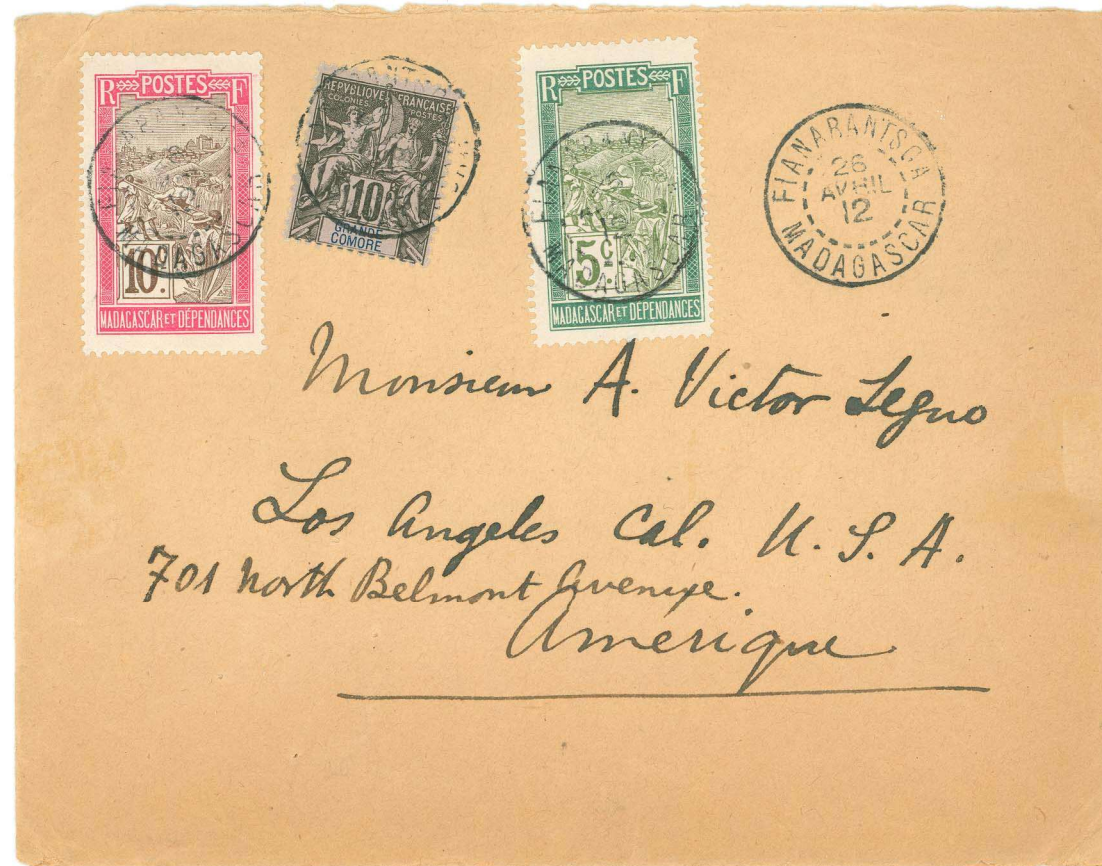 R POSTES F
10 c.
MADAGASCAR ET DÉPENDANCES
REPVBLIQVE FRANÇAISE
COLONIES POSTES
10
GRANDE
COMORE
R POSTES F
5 c.
MADAGASCAR ET DÉPENDANCES
FIANARANTSOA
26
AVRIL
12
MADAGASCAR
Monsieur A. Victor Segno
Los Angeles Cal. U. S. A.
701 North Belmont Avenue.
Amérique